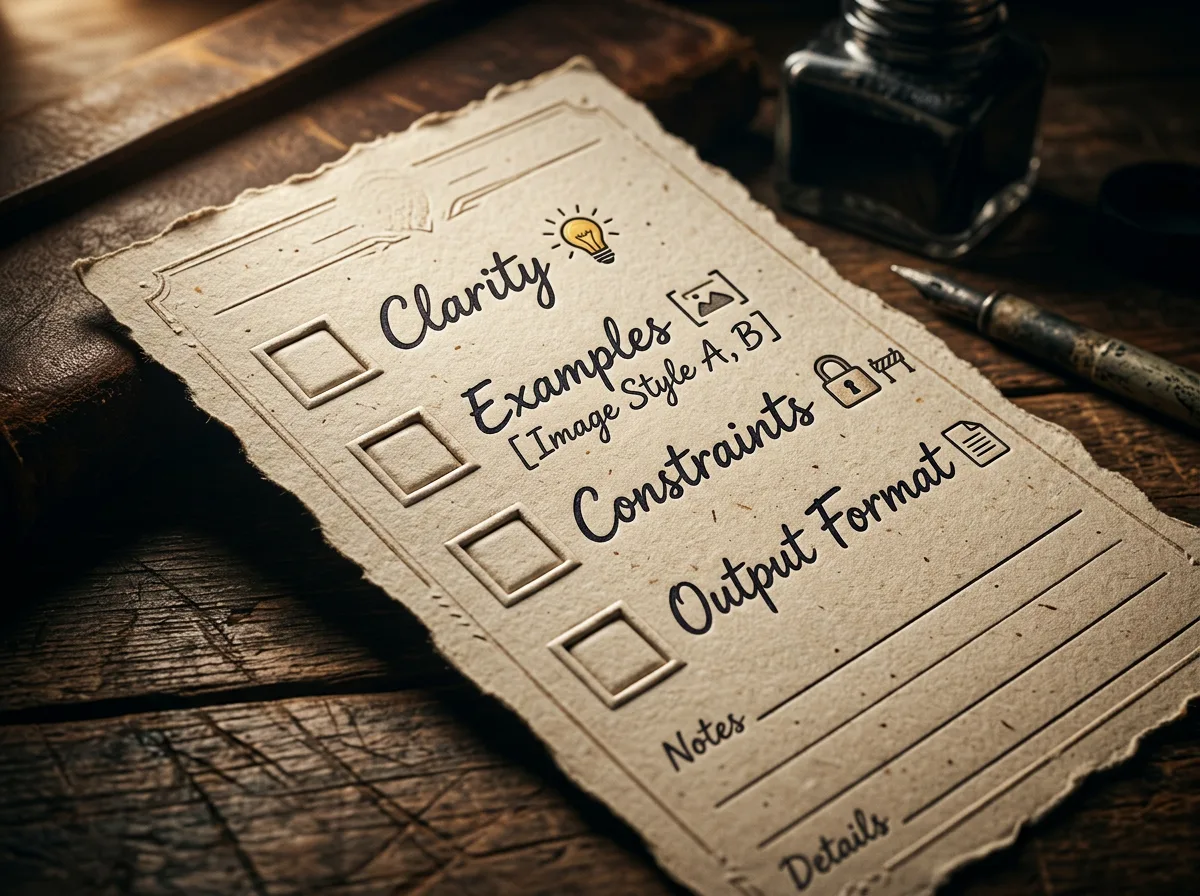 Clarity
Examples
[Image Style A, B]
Constraints
Output Format
Notes
Details